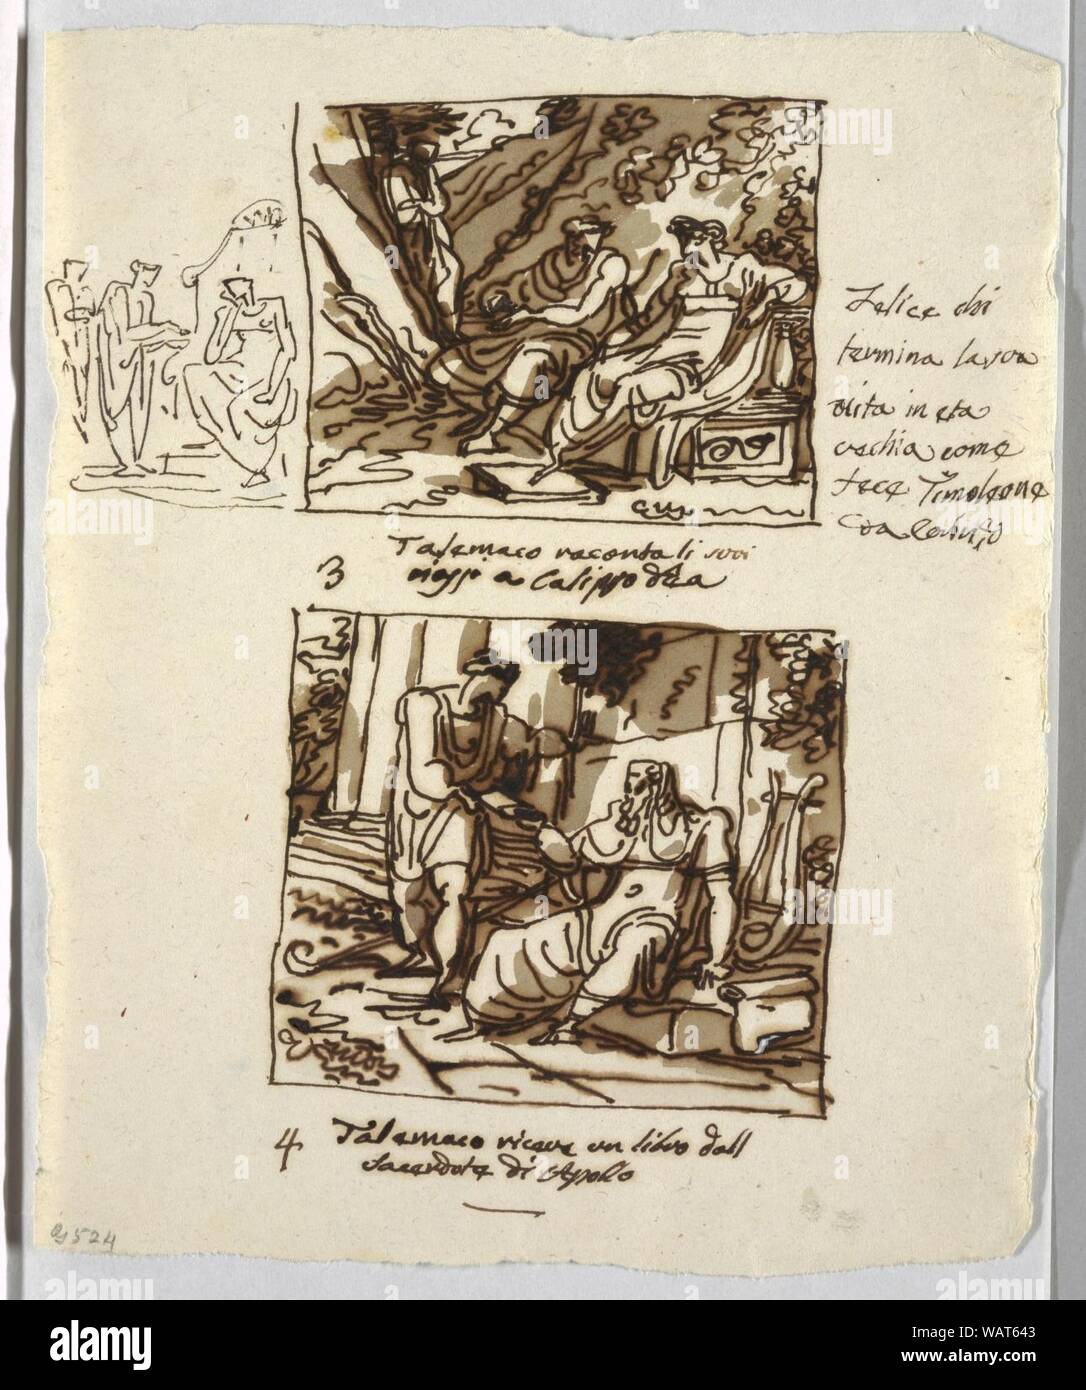 Felice chi
termina la sua
vita in eta
vechia come
fece Timoleone
da
3
Talemaco raconta li suoi
viaggi a Calippo dea
4 Talemaco riceve un libro dall
Sacerdote di Apollo
9524
alamy
Image ID: WAT643
www.alamy.com